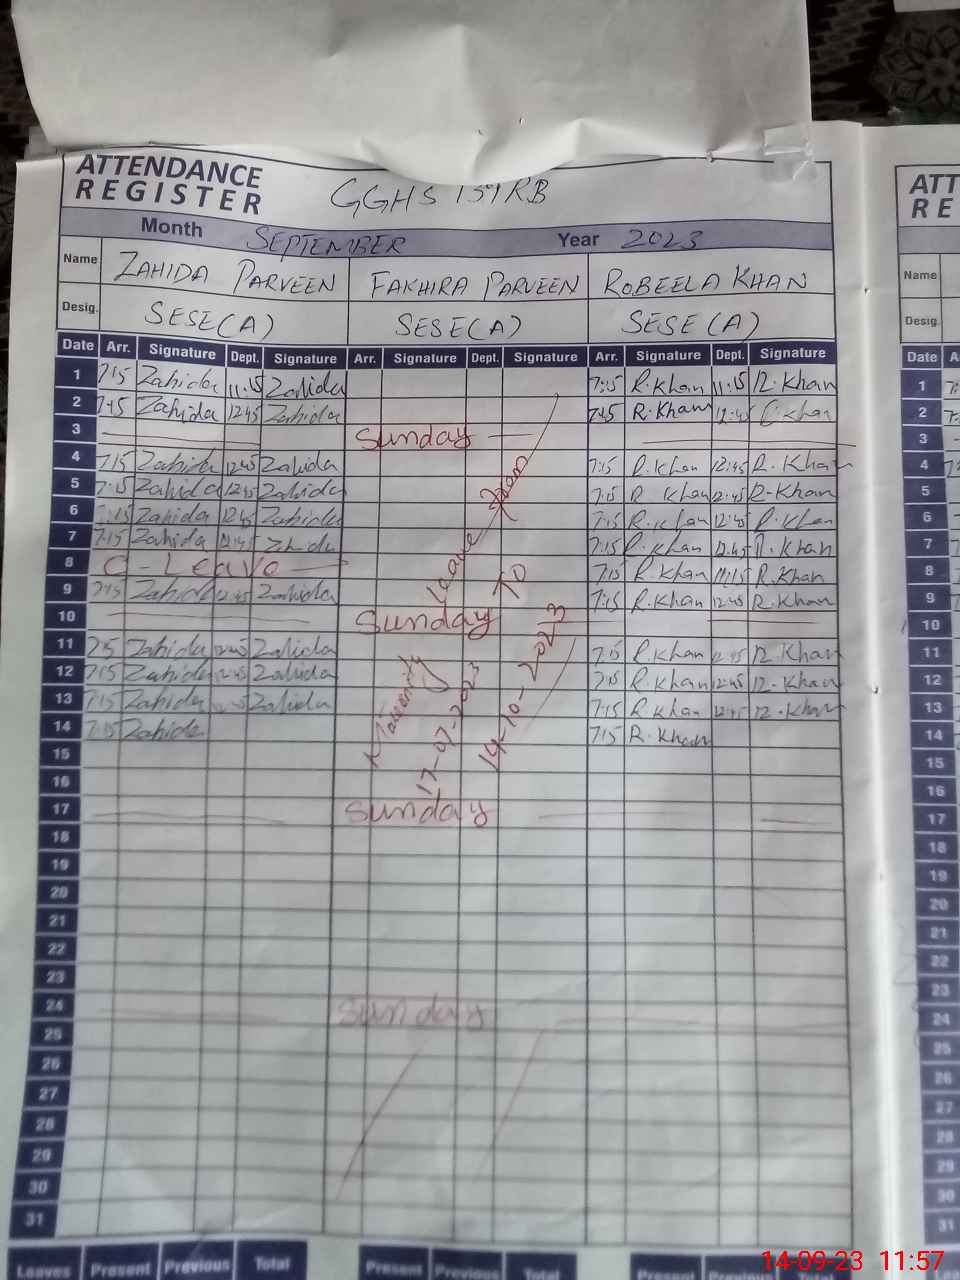 ATTENDANCE
REGISTER
GGHS 159RB
ATT
RE
Month SEPTEMBER Year 2023
Name ZAHIDA PARVEEN FAKHIRA PARVEEN ROBEELA KHAN Name
Desig. SESE(A) SESE(A) SESE(A) Desig.
Date Arr. Signature Dept. Signature Arr. Signature Dept. Signature Arr. Signature Dept. Signature Date A
1 7:15 Zahida 11:15 Zahida 7:15 R.Khan 11:15 R.Khan 1
2 7:15 Zahida 12:45 Zahida 7:45 R.Khan 12:45 R.khan 2
3 Sunday 3
4 7:15 Zahida 12:45 Zahida 7:15 R.Khan 12:45 R.Khan 4
5 7:15 Zahida 12:45 Zahida 7:15 R Khan 12:45 R-Khan 5
6 7:15 Zahida 12:45 Zahida 7:15 R.Khan 12:45 R.Khan 6
7 7:15 Zahida 12:45 Zahida 7:15 R.Khan 12:45 R.Khan 7
8 C-Leave 7:15 R.Khan 11:15 R.Khan 8
9 7:15 Zahida 12:45 Zahida 7:15 R.Khan 12:45 R.Khan 9
10 Sunday 10
11 7:15 Zahida 12:45 Zahida 7:15 R.Khan 12:45 R.Khan 11
12 7:15 Zahida 12:45 Zahida 7:15 R.Khan 12:45 R.Khan 12
13 7:15 Zahida 12:45 Zahida 7:15 R Khan 12:45 R.Khan 13
14 7:15 Zahida 7:15 R.Khan 14
Maternity Leave From
17-07-2023 TO
14-10-2023
15 15
16 16
17 Sunday 17
18 18
19 19
20 20
21 21
22 22
23 23
24 Sunday 24
25 25
26 26
27 27
28 28
29 29
30 30
31 31
Leaves Present Previous Total Present Previous Total Present Previous Total
14-09-23 11:57